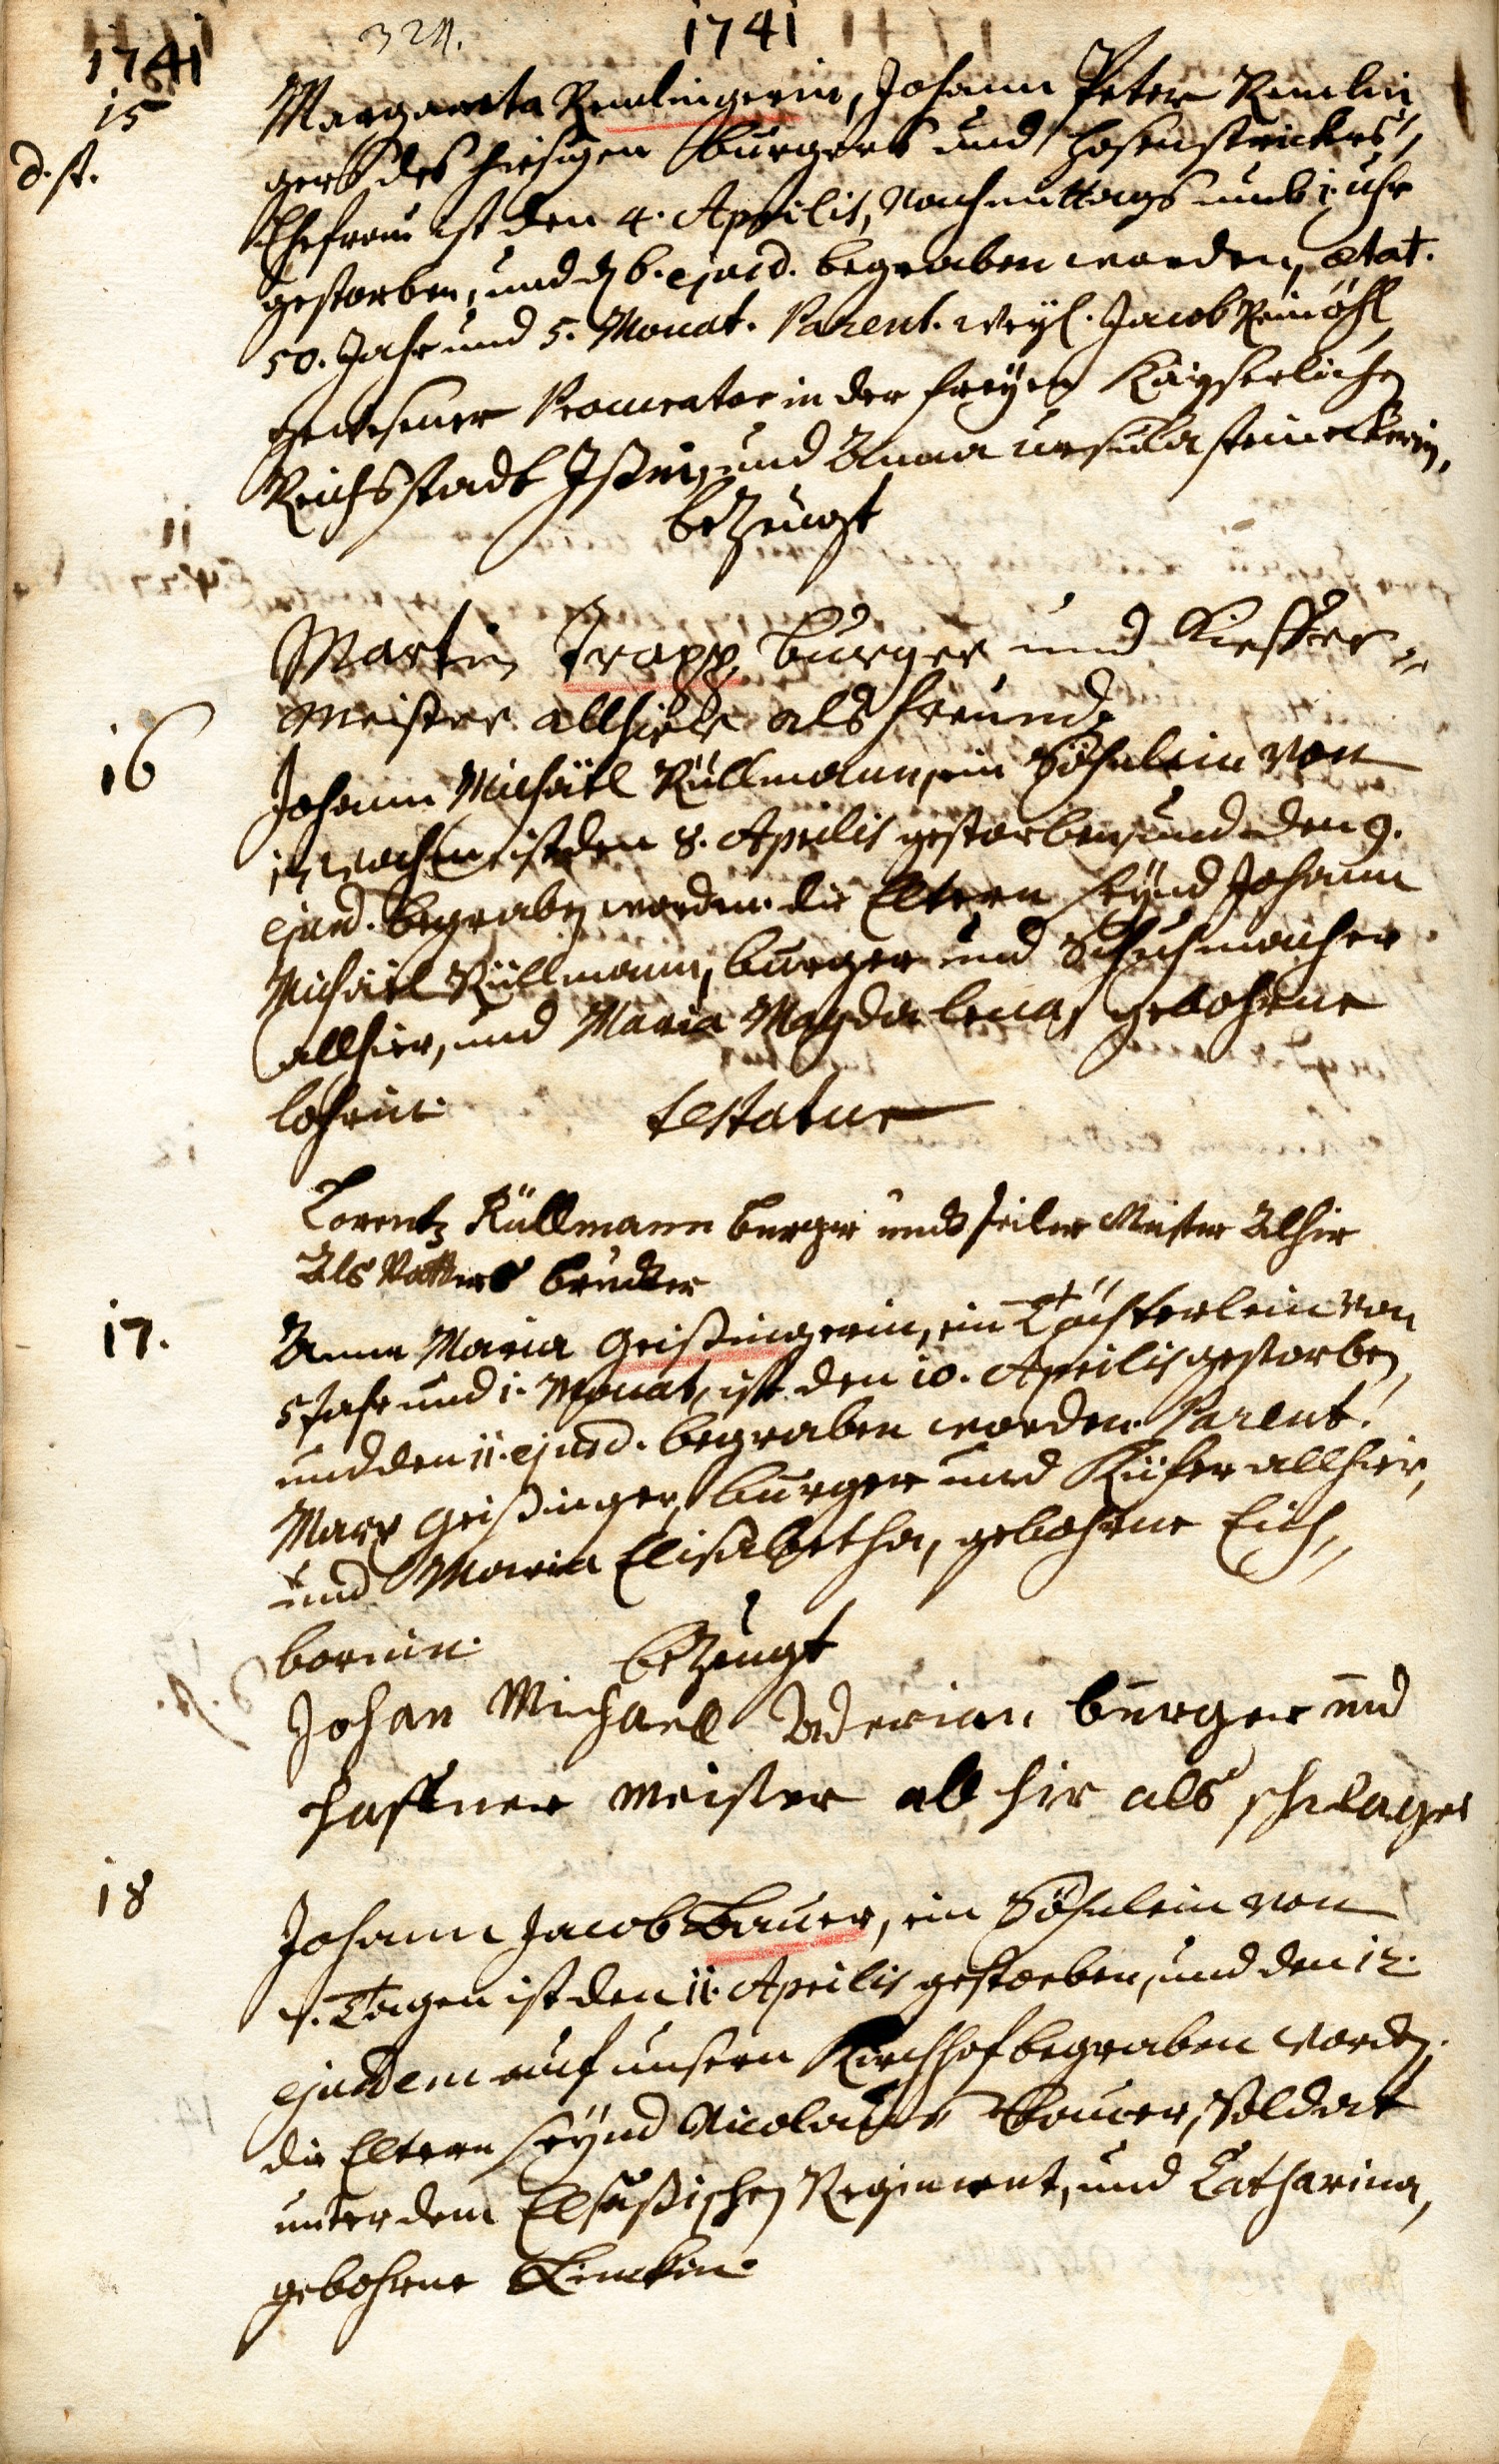 324.
1741
1741
15
d. st.
Margareta Remlingerin, Johann Peter Remlin
gers des hiesigen burgers und Hosenstrickers,
Ehefrau ist den 4. Aprilis, Nachmittags umb 1. uhr
gestorben, und d 6. ejusd. begraben worden, ætat.
50. Jahr und 5. Monat. Parent. weyl. Jacob Reinöhl
gewesener Procurator in der freyen Kayserlichen
Reichsstadt Ißni, und Anna Ursula
bezeugt
Martin Trapp burger und Kieffer
Meister allhier als freund
16
Johann Michäel Küllmann, ein Söhnlein von
Wochen ist den 8. Aprilis gestorben, und den 9.
ejusd. begraben worden. die Eltern seynd Johann
Michäel Küllmann, burger und Schuhmacher
allhier, und Maria Magdalena, gebohrne
lohrin. testatur
Lorentz Küllmann burger und seiler Meister Alhir
Als Vatters bruder
17.
Anna Maria Geißingerin, ein Töchterlein von
5 Jahr und 1. Monat, ist den 10. Aprilis gestorben,
und den 11. ejusd. begraben worden. Parent.
Marx Geißinger, burger und Küfer allhier,
und Maria Elisabetha, gebohrne Eich,,
bornin. bezeugt
Johan Michaell burger und
haffner meister al hir als schwager
18
Johann Jacob Bauer, ein Söhnlein von
Tagen ist den 11. Aprilis gestorben, und den 12.
ejusdem auf unsern Kirchhof begraben worden.
die Eltern seynd Nicolaus Bauer, Soldat
unter dem Elsäßischen Regiment, und Catharina,
gebohrne